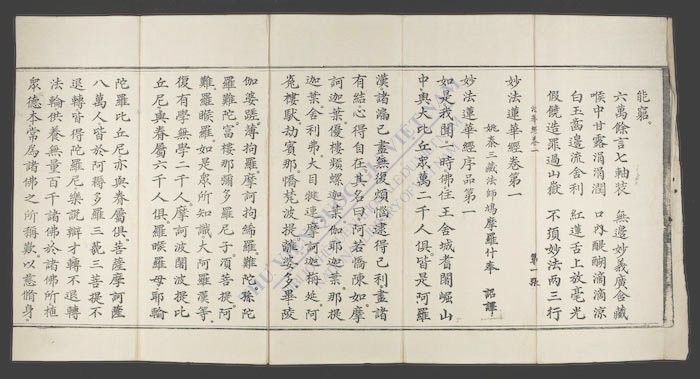 能窮。
六萬餘言七軸裝 無邊妙義廣含藏
喉中甘露涓涓潤 口內醍醐滴滴涼
白玉齒邊流舍利 紅蓮舌上放毫光
假饒造罪過山嶽 不須妙法兩三行
法華經卷一 第一張
妙法蓮華經卷第一
姚秦三藏法師鳩摩羅什奉 詔譯
妙法蓮華經序品第一
如是我聞一時佛住王舍城耆闍崛山
中與大比丘眾萬二千人俱皆是阿羅
漢諸漏已盡無復煩惱逮得己利盡諸
有結心得自在其名曰阿若憍陳如摩
訶迦葉優樓頻螺迦葉伽耶迦葉那提
迦葉舍利弗大目揵連摩訶迦旃延阿
㝹樓馱劫賓那憍梵波提離婆多畢陵
伽婆蹉薄拘羅摩訶拘絺羅難陀孫陀
羅難陀富樓那彌多羅尼子須菩提阿
難羅睺羅如是眾所知識大阿羅漢等。
復有學無學二千人摩訶波闍波提比
丘尼與眷屬六千人俱羅睺羅母耶輸
陀羅比丘尼亦與眷屬俱。菩薩摩訶薩
八萬人皆於阿耨多羅三藐三菩提不
退轉皆得陀羅尼樂說辯才轉不退轉
法輪供養無量百千諸佛於諸佛所植
眾德本常為諸佛之所稱歎以慈脩身